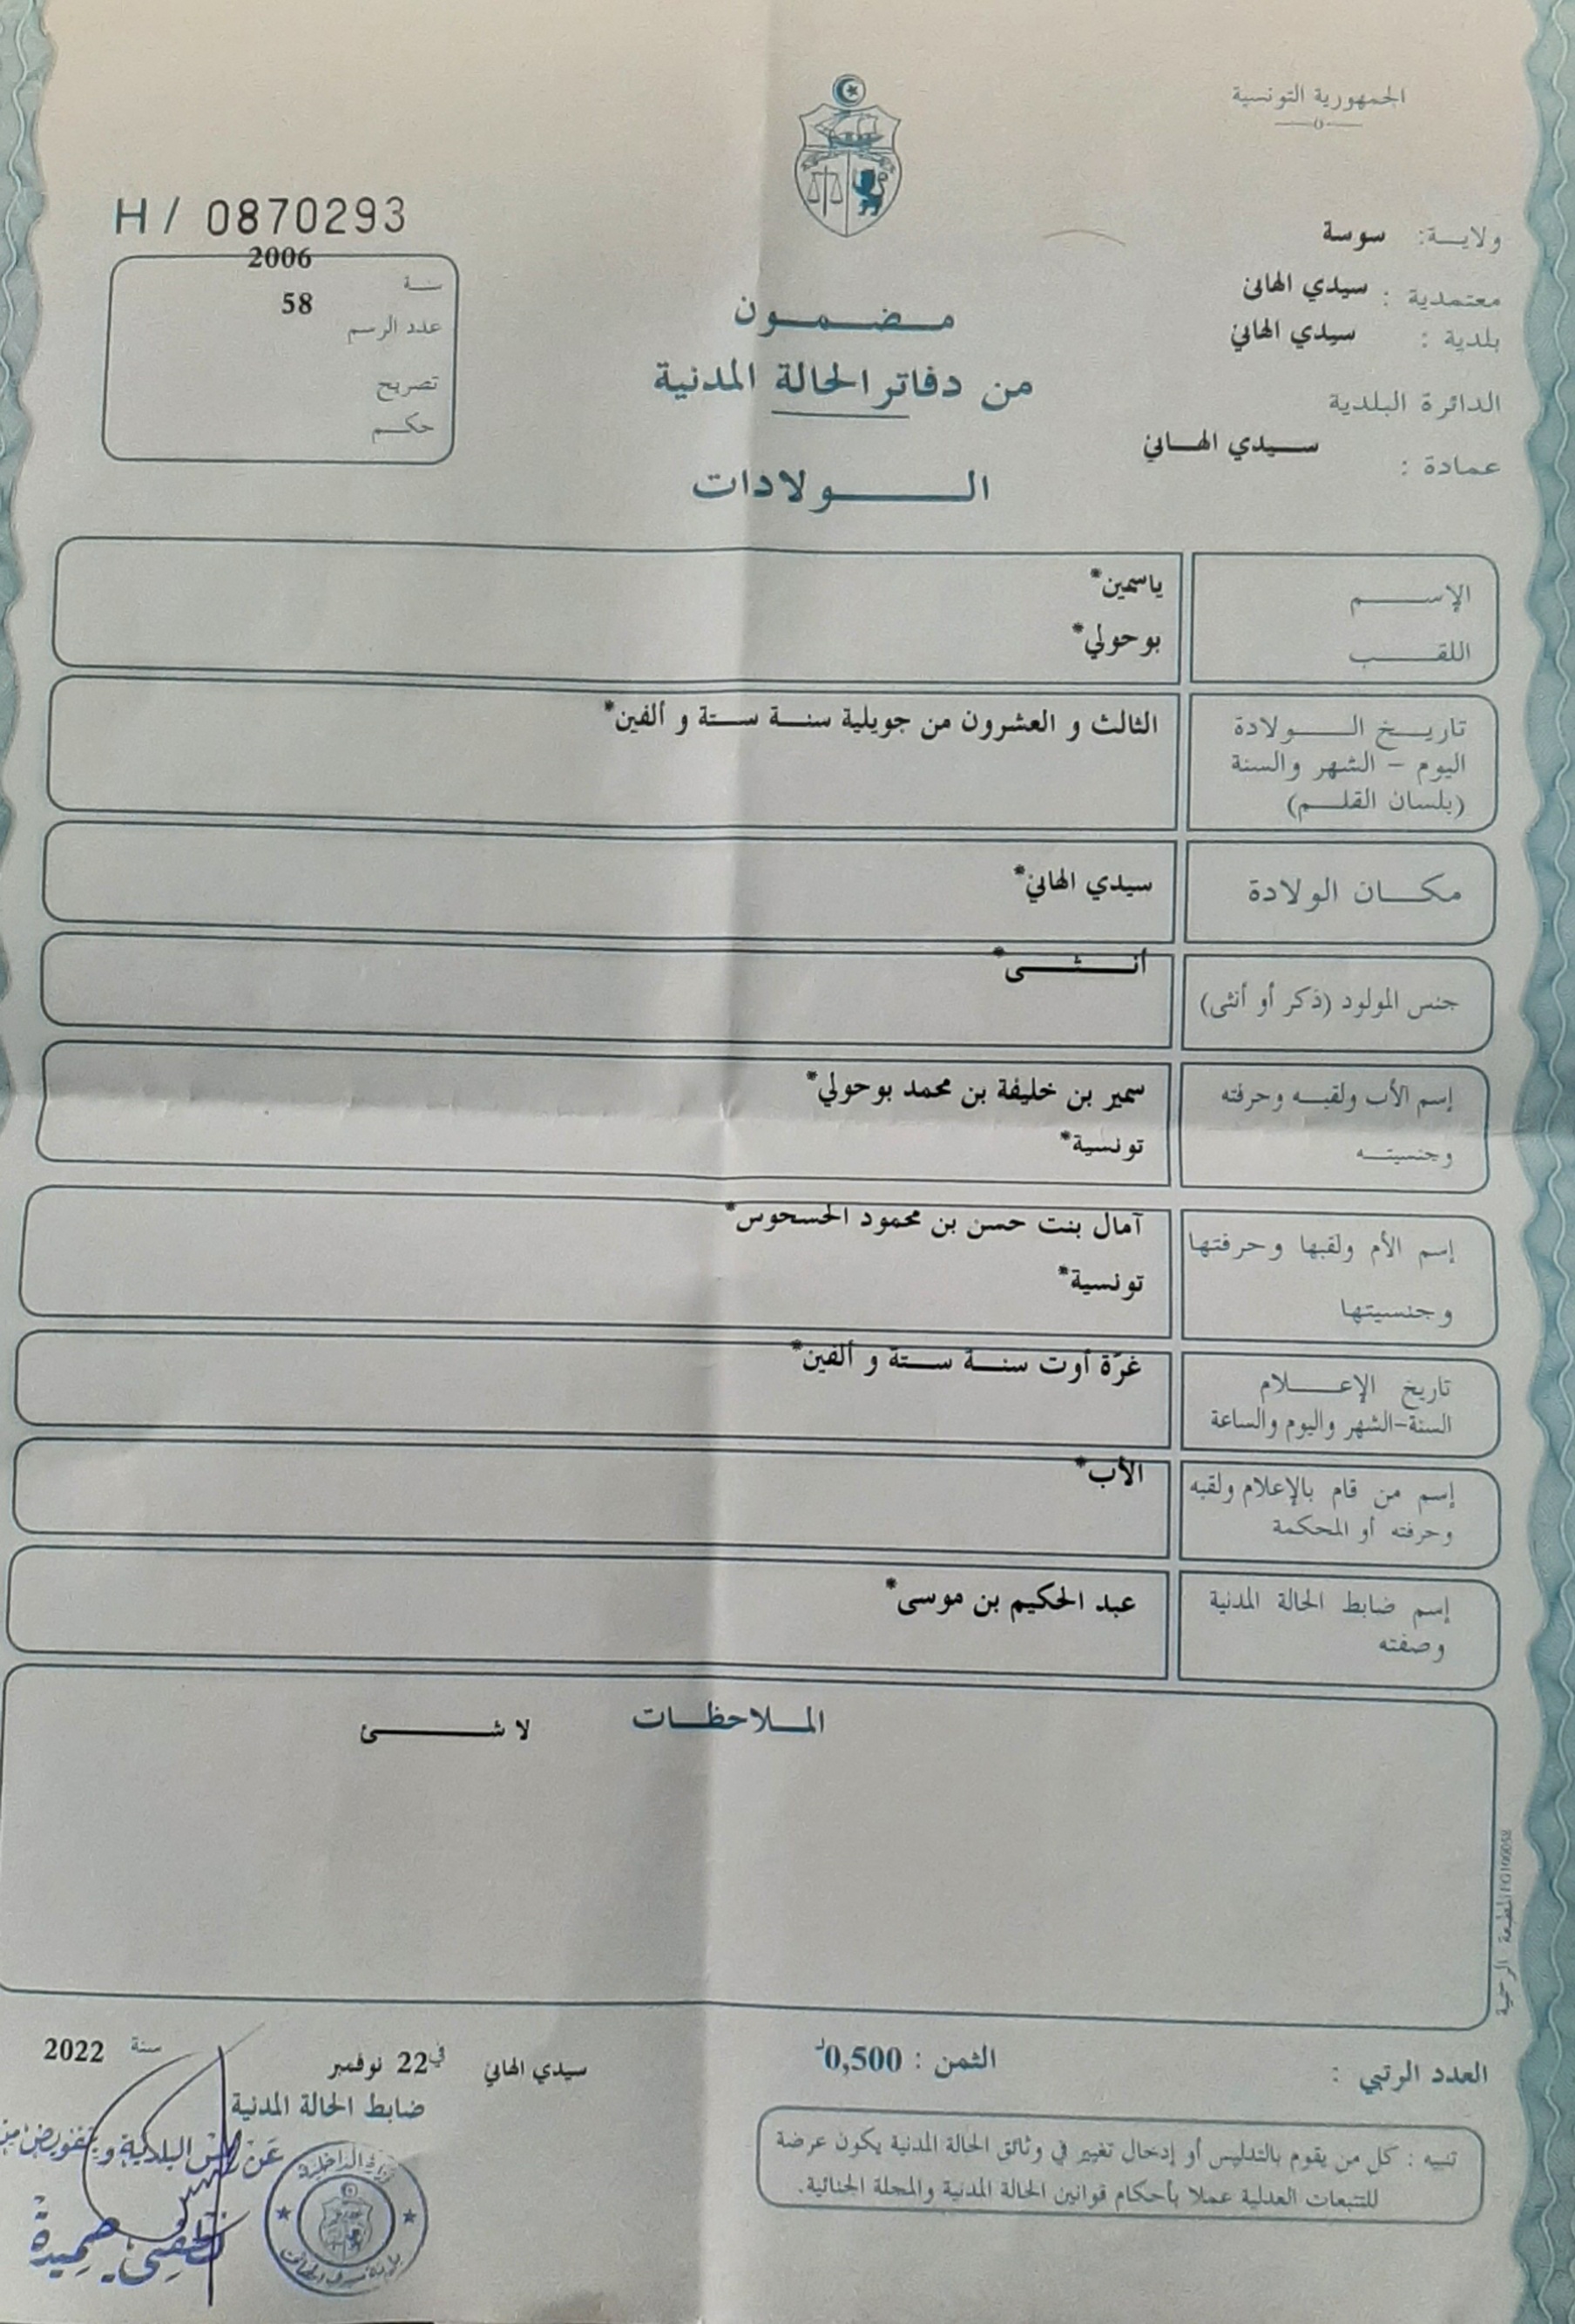 الجمهورية التونسية
ولاية: سوسة
معتمدية : سيدي الهاني
بلدية : سيدي الهاني
الدائرة البلدية
عمادة : سيدي الهاني
H / 0870293
سنة 2006
عدد الرسم 58
تصريح
حكم
مضمون
من دفاتر الحالة المدنية
الولادات
الإسم ياسمين*
اللقب بوحولي*
تاريخ الولادة الثالث و العشرون من جويلية سنة ستة و ألفين*
اليوم - الشهر والسنة
(بلسان القلم)
مكان الولادة سيدي الهاني*
جنس المولود (ذكر أو أنثى) أنثى*
إسم الأب ولقبه وحرفته سمير بن خليفة بن محمد بوحولي*
وجنسيته تونسية*
إسم الأم ولقبها وحرفتها آمال بنت حسن بن محمود الحسحوس*
وجنسيتها تونسية*
تاريخ الإعلام غرّة أوت سنة ستة و ألفين*
السنة-الشهر واليوم والساعة
إسم من قام بالإعلام ولقبه الأب*
وحرفته أو المحكمة
إسم ضابط الحالة المدنية عبد الحكيم بن موسى*
وصفته
الملاحظات لا شئ
المطبعة الرسمية
العدد الرتبي :
الثمن : 0,500د
سيدي الهاني في 22 نوفمبر سنة 2022
ضابط الحالة المدنية
عن رئيس البلدية وبتفويض منه
وزارة الداخلية
بلدية سيدي الهاني
تنبيه : كل من يقوم بالتدليس أو إدخال تغيير في وثائق الحالة المدنية يكون عرضة
للتتبعات العدلية عملا بأحكام قوانين الحالة المدنية والمجلة الجنائية.